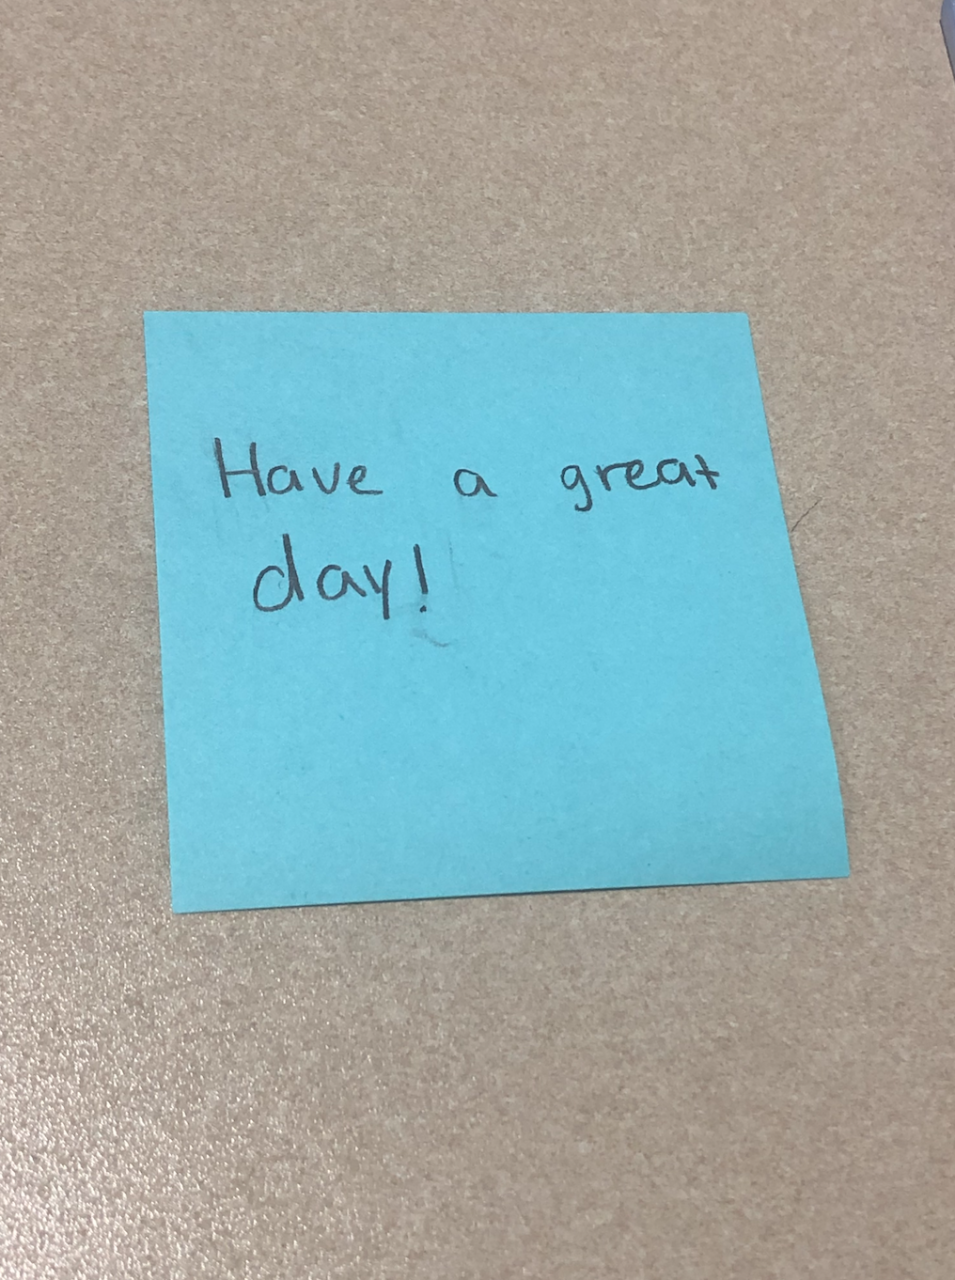 Have a great
day!